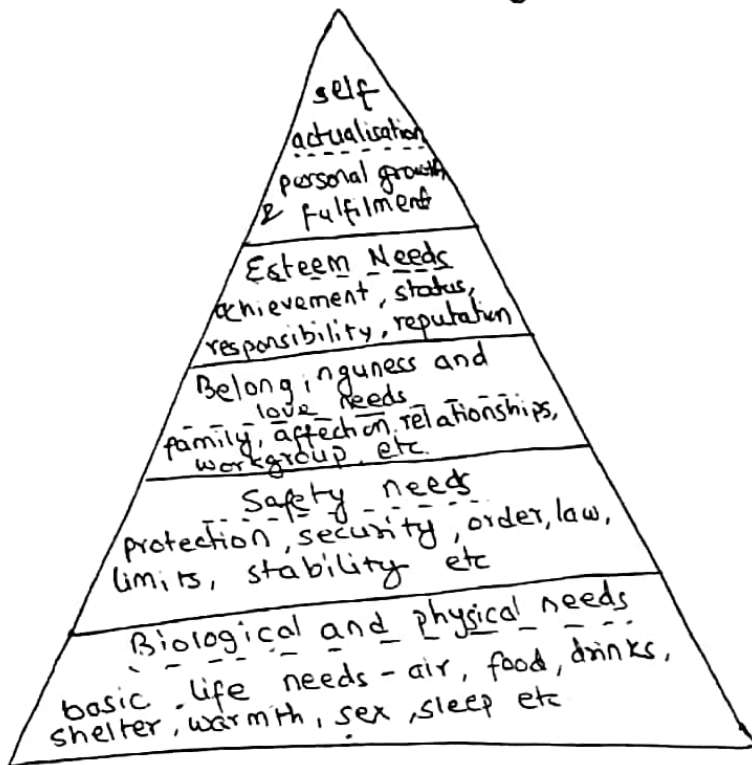 self
actualisation
personal growth
& fulfilment
Esteem Needs
achievement, status,
responsibility, reputation
Belonginguness and
love needs
family, affection, relationships,
workgroup, etc.
Safety needs
protection, security, order, law,
limits, stability etc
Biological and physical needs
basic life needs - air, food, drinks,
shelter, warmth, sex, sleep etc